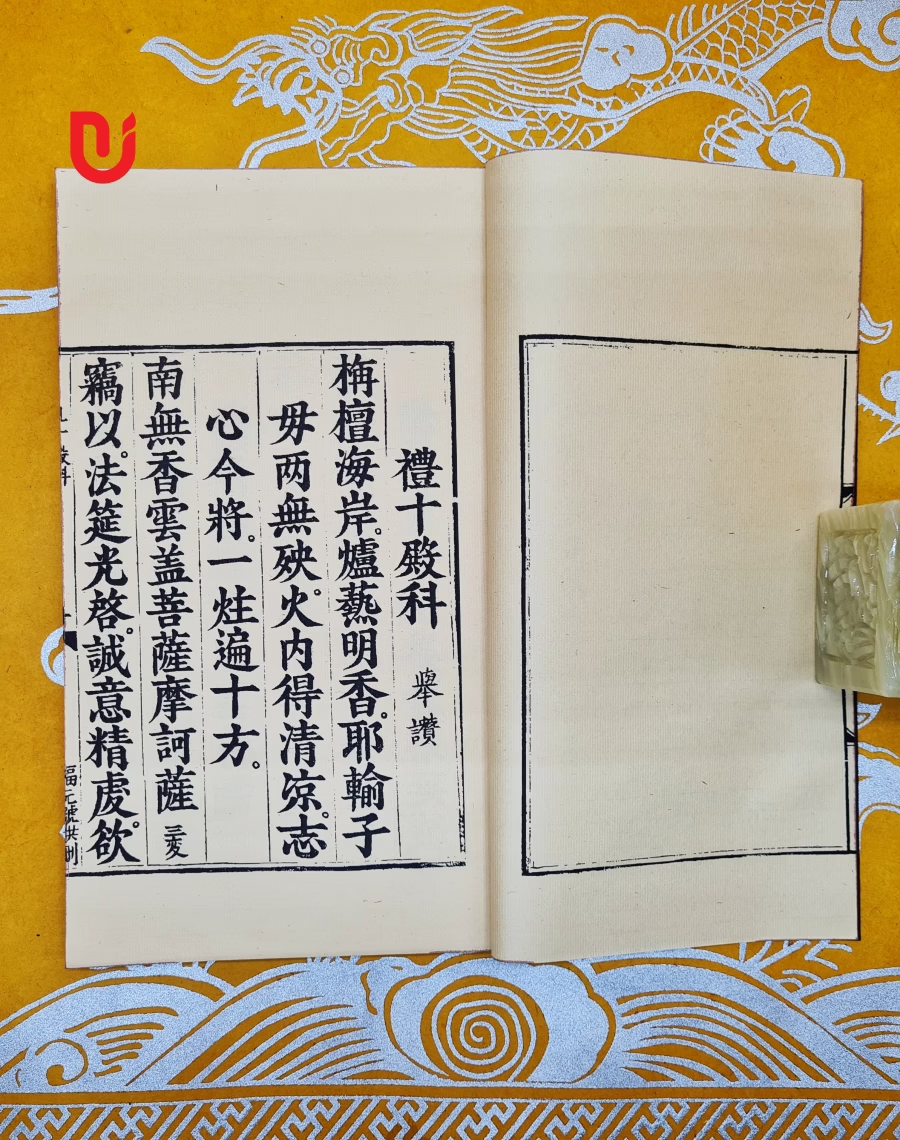 禮十殿科 舉讚
栴檀海岸。爐爇明香。耶輸子
母两無殃。火内得清凉。志
心今將。一炷遍十方。
南無香雲盖菩薩摩訶薩 三变
竊以。法筵光啓。誠意精虔。欲
福元號拱刪